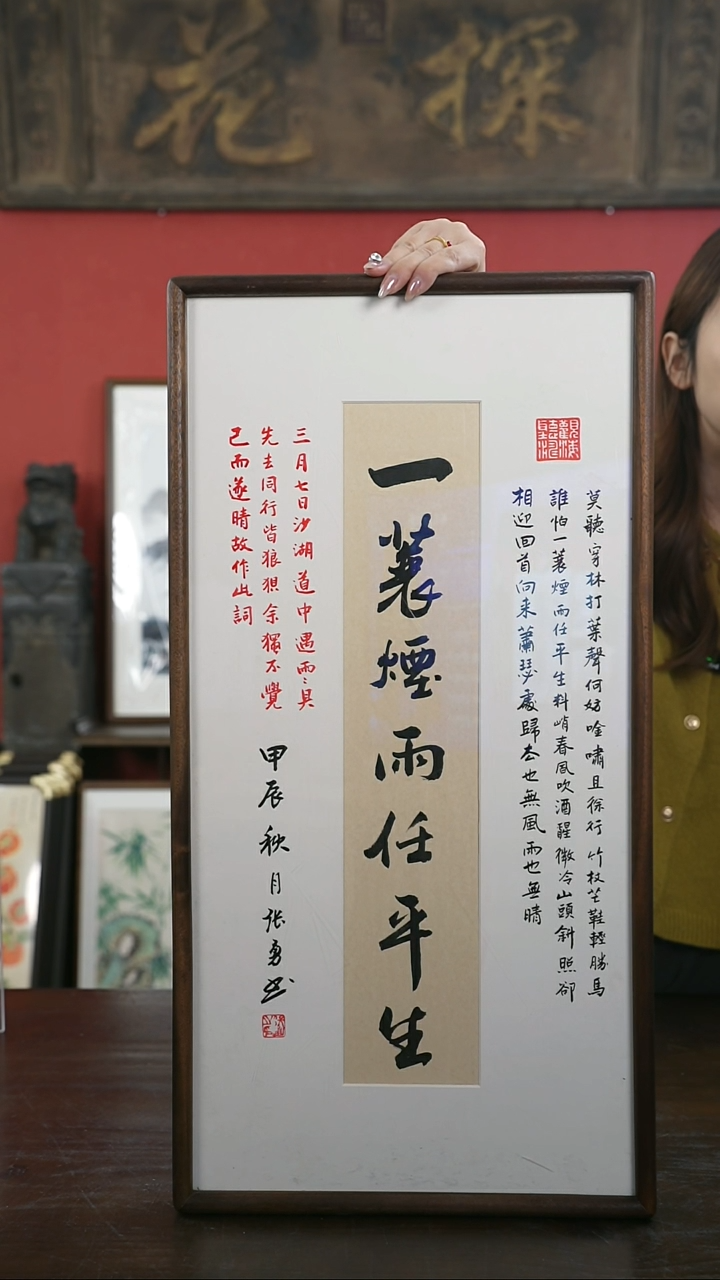 探花
莫聽穿林打葉聲何妨吟嘯且徐行竹杖芒鞋輕勝馬
誰怕一蓑煙雨任平生料峭春風吹酒醒微冷山頭斜照卻
相迎回首向來蕭瑟處歸去也無風雨也無晴
一蓑煙雨任平生
三月七日沙湖道中遇雨〻具
先去同行皆狼狽余獨不覺
已而遂晴故作此詞
甲辰秋月张勇书